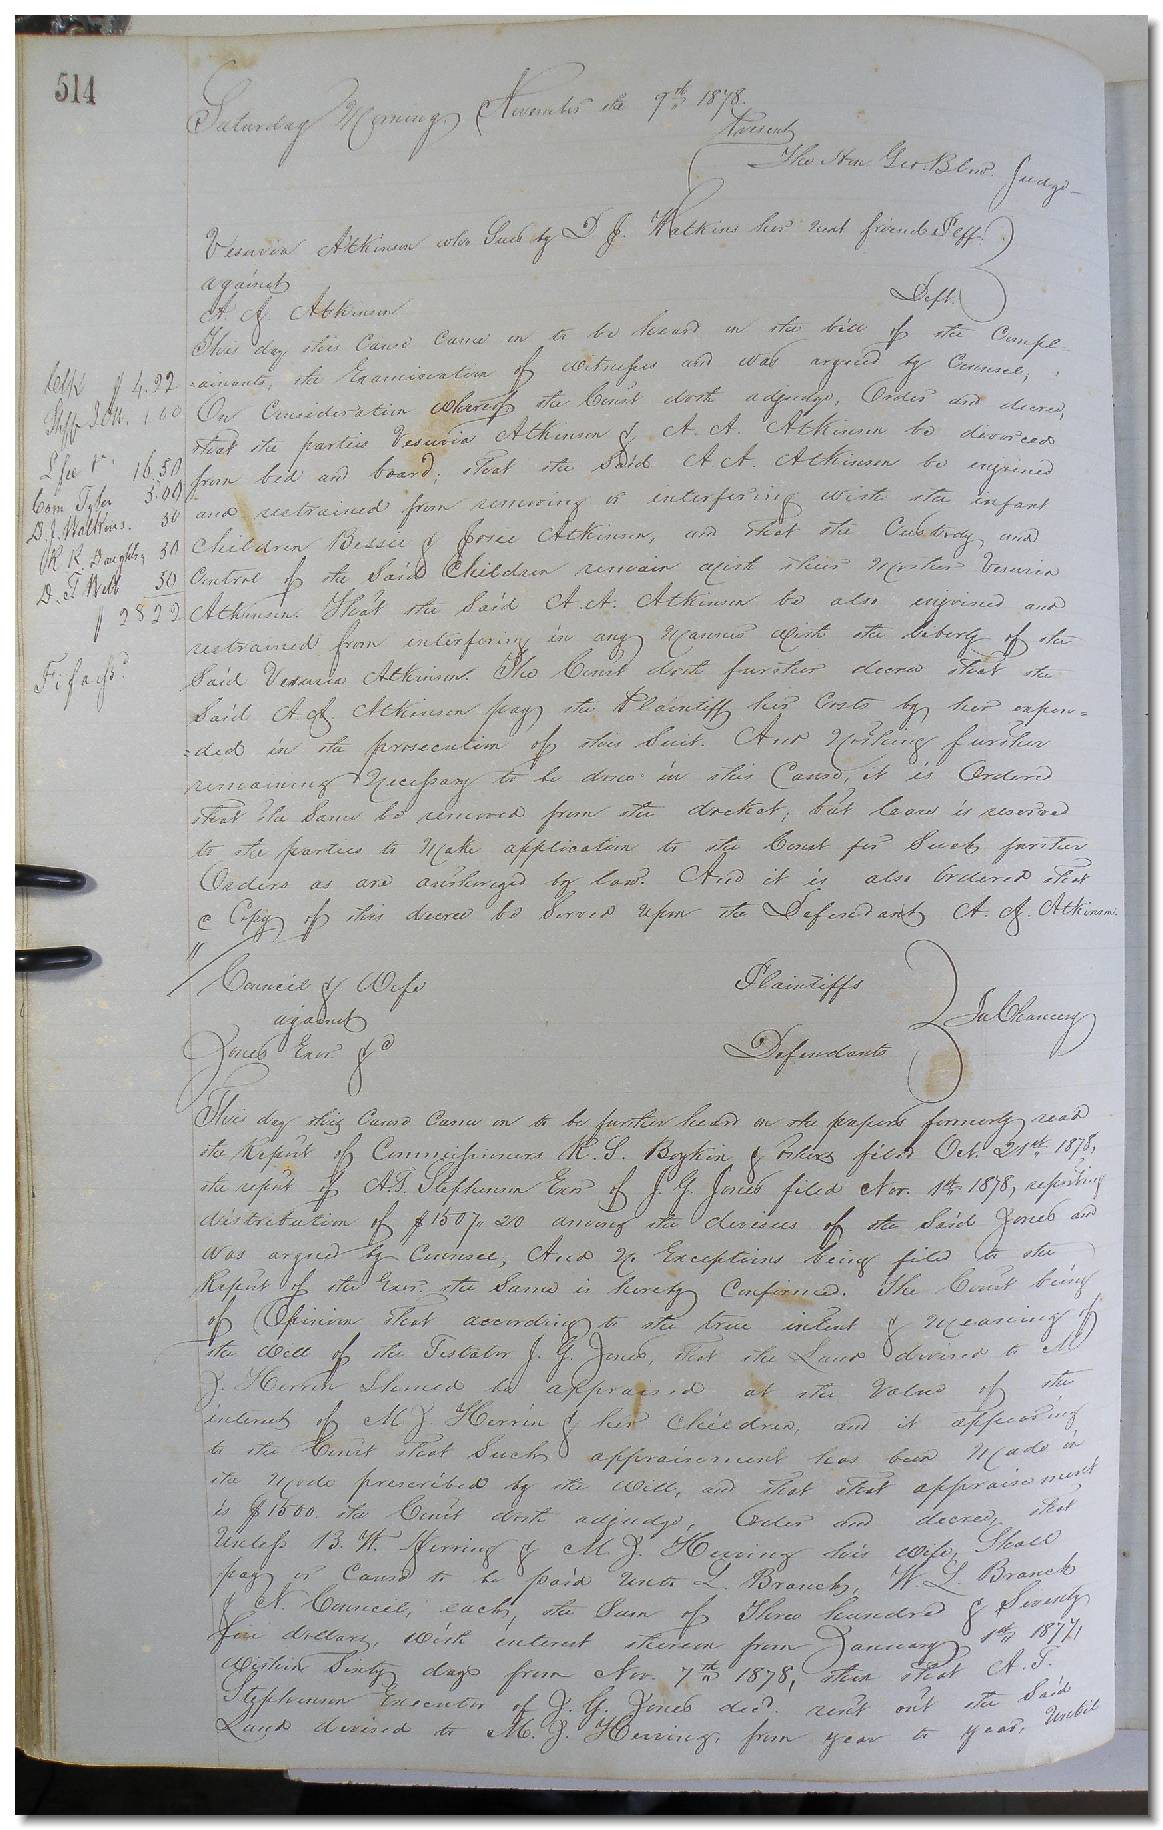 514
Saturday Morning, November the 9th 1878.
Present
The Hon Geo. Blow. Judge
Vesuvia Atkinson who Sues by D J. Watkins her next friend Plff.
against
Deft.
A. A. Atkinson
This day this Cause Came on to be heard on the bill of the Compl-
-ainants, the Examination of witnesses and was argued by Counsel,
On Consideration whereof the Court doth adjudge, Order and decree,
that the parties Vesuvia Atkinson & A. A. Atkinson be divorced
from bed and board; that the Said A A. Atkinson be enjoined
and restrained from removing or interfering with the infant
Children Bessee & Josee Atkinson, and that the Custody and
Control of the Said Children remain with their Mother Vesuvia
Atkinson. That the Said A. A. Atkinson be also enjoined and
restrained from interfering in any Manner with the liberty of the
Said Vesuvia Atkinson. The Court doth further decree that the
Said A A. Atkinson pay the Plaintiff her Costs by her expen=
=ded in the prosecution of this Suit. And Nothing further
remaining Necessary to be done in this Cause, it is Ordered
that the Same be removed from the docket, but leave is reserved
to the parties to Make application to the Court for Such further
Orders as are authorized by law. And it is also Ordered that
a Copy of this decree be Served upon the Defendant A. A. Atkinson.
$ 4.92
1 00
16.50
Com Tyler 5.00
D. J. Watkins. 50
50
D. T. Webb 50
$ 28 22
Council & Wife Plaintiffs
against In Chancery
Jones Exor &c Defendants
This day this Cause Came on to be further heard on the papers formerly read
the Report of Commissioners R. S. Boykin & others filed Oct. 21st 1878,
the report of A.T. Stephenson Exor of J. G. Jones filed Nov. 1st 1878, reporting
distribution of $1507.20 among the devisees of the Said Jones and
was argued by Counsel, And No Exceptions being filed to the
Report of the Exor. the Same is hereby Confirmed. The Court being
of Opinion that according to the true intent & Meaning of
the Will of the Testator J. G. Jones, that the Land devised to M
J. Herrin Should be appraised at the Value of the
interest of M J. Herrin & her Children, and it appearing
to the Court that Such appraisement has been Made in
the Mode prescribed by the Will, and that that appraisement
is $1500. the Court doth adjudge, Order and decree, that
Unless B. W. Herring & M. J. Herring his Wife, Shall
pay or Cause to be paid Unto L. Branch, W. L. Branch
& N. Council, each, the Sum of Three hundred & Seventy
five dollars, with interest thereon from January 1st 1877,
Within Sixty days from Nov. 7th 1878, then that A. T.
Stephenson Executor of J. G. Jones decd. rent out the Said
Land devised to M. J. Herring, from year to year, Until